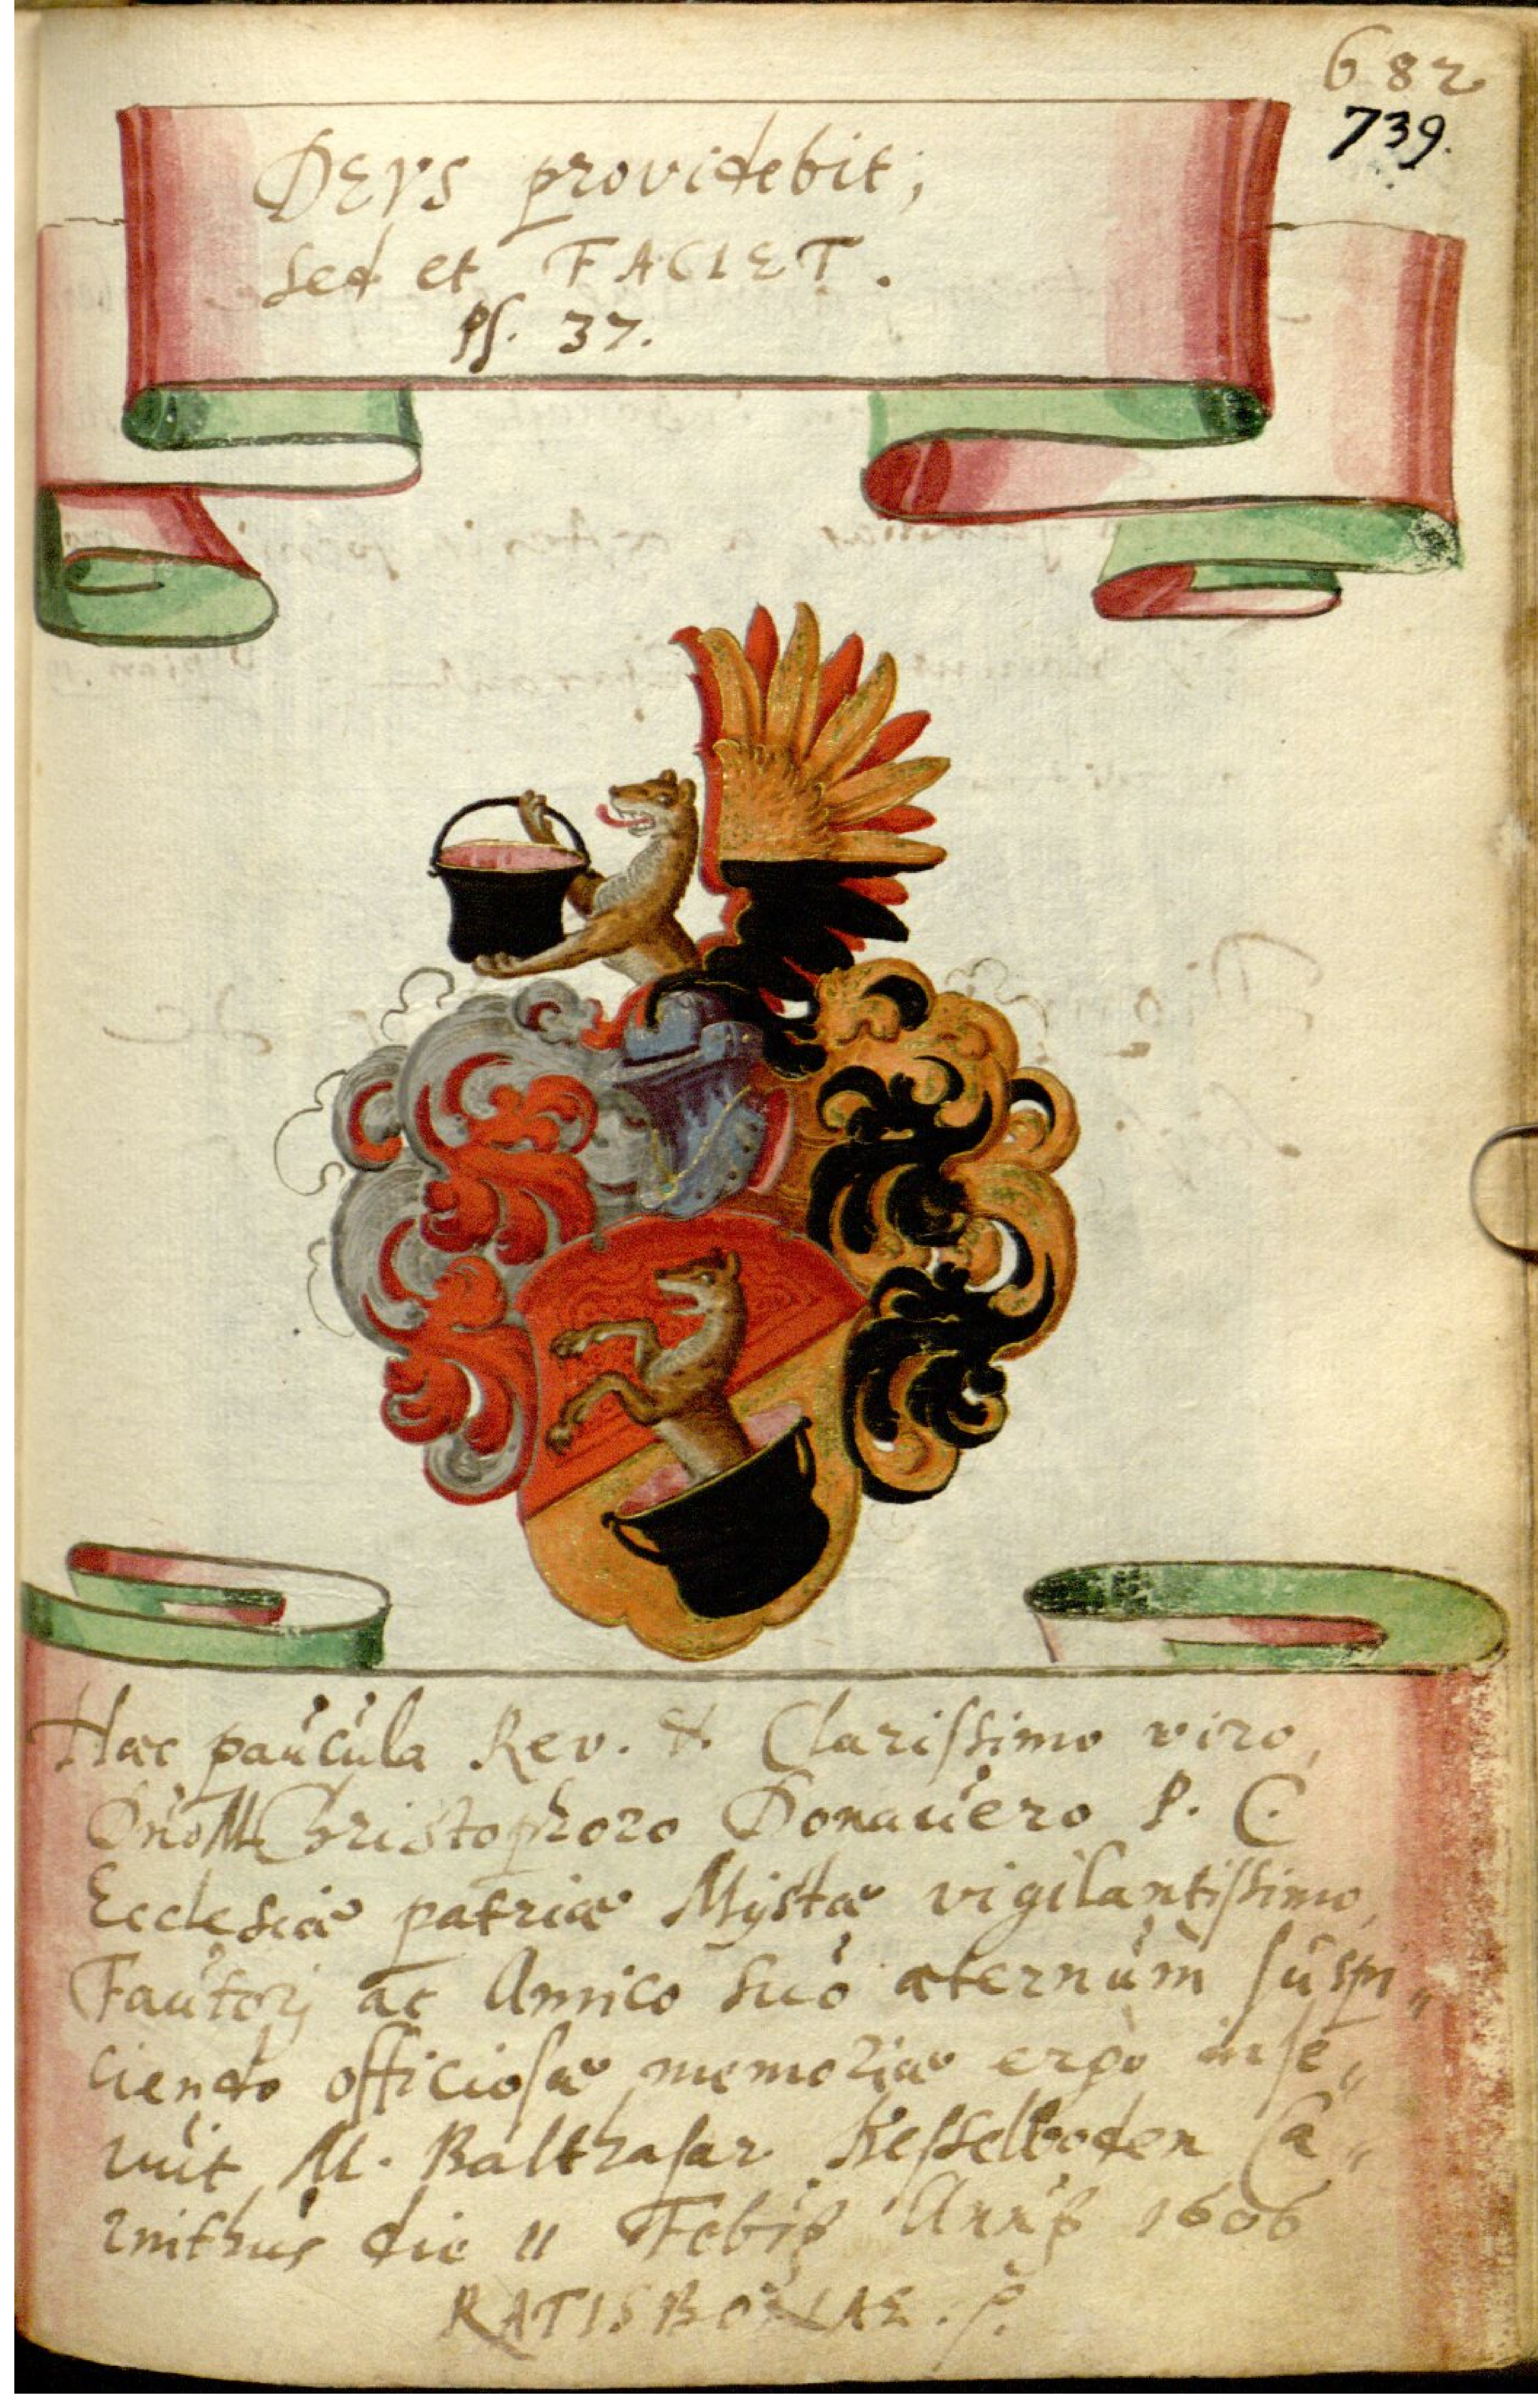 682
739.
DEVS providebit;
sed et FACIET.
Ps. 37.
Hæc paucula Rev. & Clarissimo viro,
Dno M Christophoro Donauero P. C.
Ecclesiæ patriæ Mystæ vigilantissimo,
Fautorj ac Amico suo æternum suspi„
ciendo officiosæ memoriæ ergò inse„
ruit M. Balthasar Kesselboden Ca„
rinthus die 11 Febr 1606
RATISBONAE.